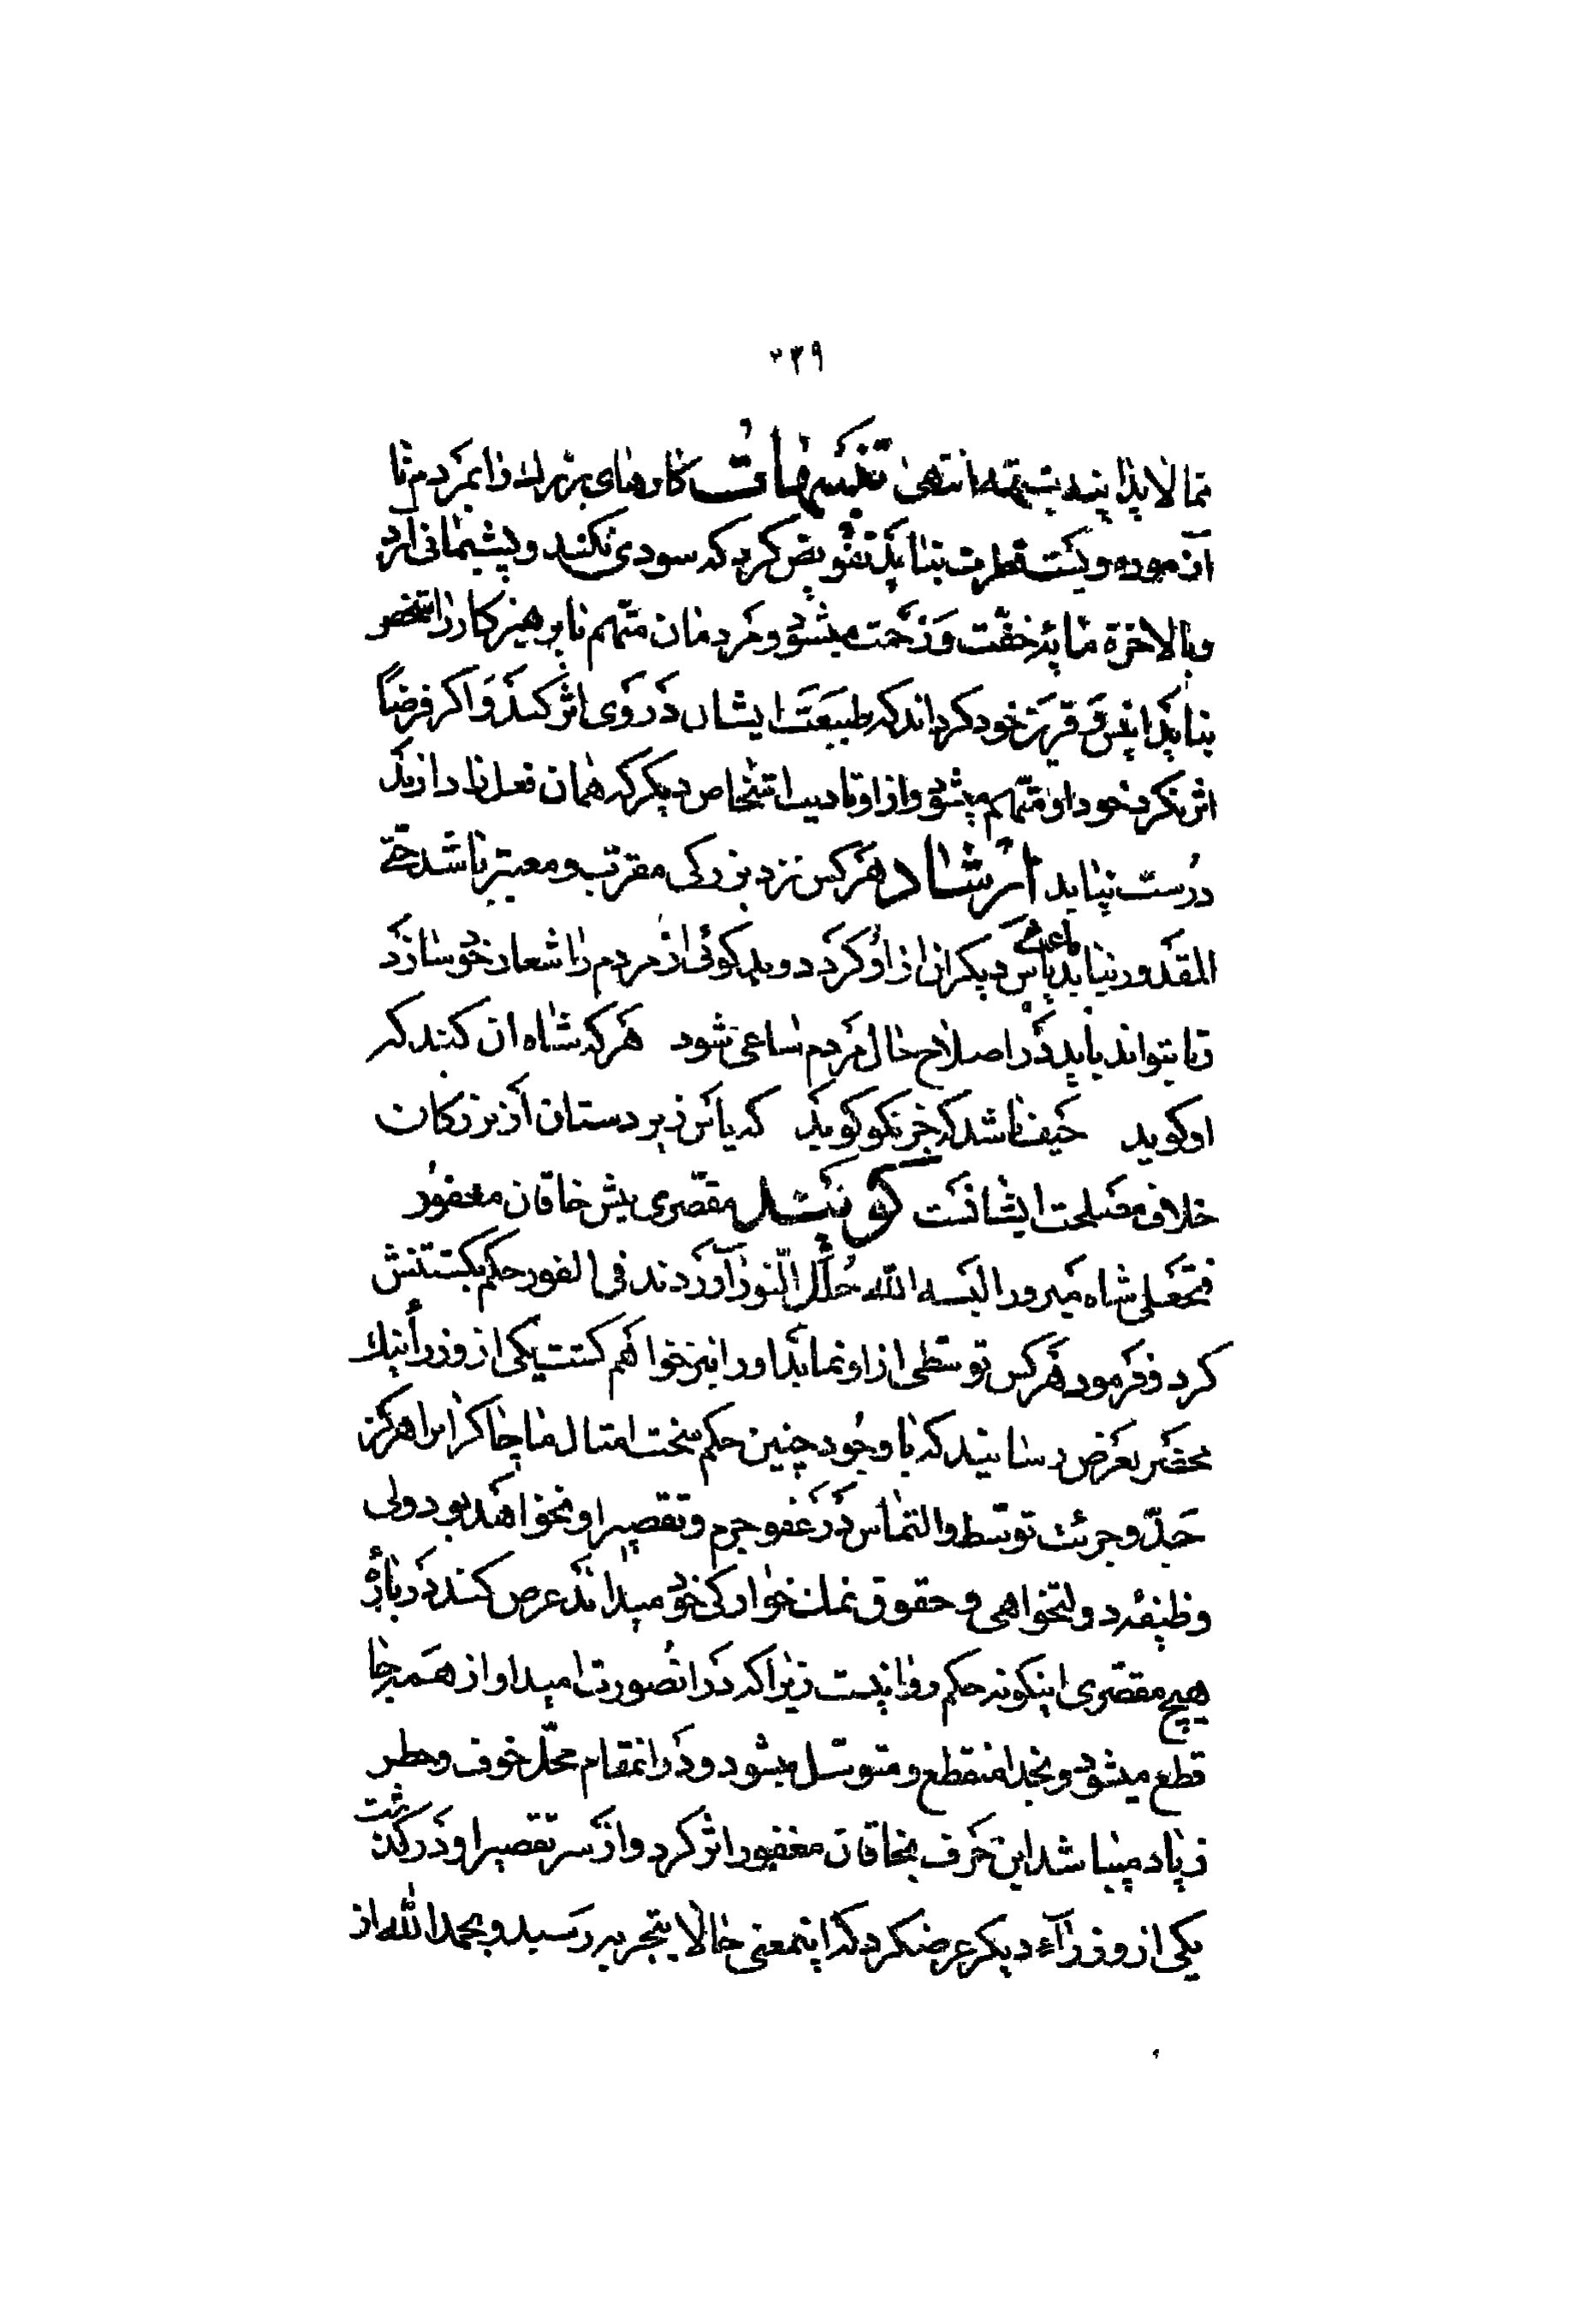 ۲۳۹
انتهی تنبیهات کارهای بزرک را بمردم نا
آزموده و پست فطرت نباید تفویض کرد که سودی نکند و پشیمانی آرد
و بالاخره مایهٔ خفّت و زحمت میشود و مردمان متّهم ناپرهیزکار را شخص
نباید انیس و قرین خود کرداند که طبیعت ایشان در وی اثر کند و اکر فرضاً
اثر نکرد خود او متّهم میشود و از او تادیب اشخاص دیکر که همان فعل را دارند
درست نیاید ارشاد هرکس نزد بزرکی مقرّب و معتبر باشد حتّی
المقدور نباید باعث یاس دیکران از او کردد و بدکوئی از مردم را شعار خود سازد
تا بتواند باید در اصلاح حال مردم ساعی شود هرکه شاه آن کند که
او کوید حیف باشد که جز نکو کوید که یاس زیردستان از بزرکان
خلاف مصلحت ایشانست کویند مقصّری پیش خاقان مغفور
فتحعلی شاه مبرور البسه الله حلل النّور آوردند فی الفور حکم بکشتنش
کرد و فرمود هرکس توسّطی از او نماید او را نیز خواهم کشت یکی از وزرأ نیک
محضر بعرض رسانید که با وجود چنین حکم سخت امثال ما چاکران را هرکز
حدّ و جرئت توسّط و التماس در عفو جرم و تقصیر او نخواهد بود ولی
وظیفهٔ دولتخواهی و حقوق نمک خوارکی خود میداند عرض کند در بارهٔ
هیچ مقصّری اینکونه حکم روا نیست زیرا که در انصورت امید او از همه جا
قطع میشود و بخدا منقطع و متوسّل میشود و در انمقام محلّ خوف و خطر
زیاد میباشد این حرف بخاقان مغفور اثر کرد و از سر تقصیر او درکذشت
یکی از وزرآء دیکر عرضکرد که اینمعنی حالا بتجربه رسید و بحمدالله از